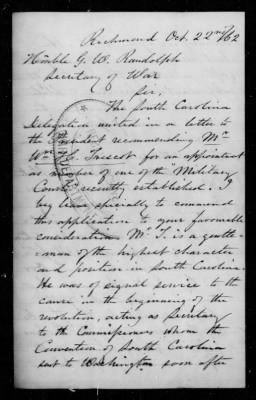 Richmond Oct. 22nd /62
Honble G. W. Randolph
Secretary of War
Sir,
The South Carolina
Delegation united in a letter to
the President recommending Mr
Wm H. Trescot for an appointment
as member of one of the "Military
Courts" recently established. I
beg leave specially to commend
this application to your favourable
consideration. Mr T. is a gentle-
-man of the highest character
and position in South Carolina.
He was of signal service to the
cause in the beginning of the
revolution, acting as Secretary
to the Commissioners whom the
Convention of South Carolina
sent to Washington soon after